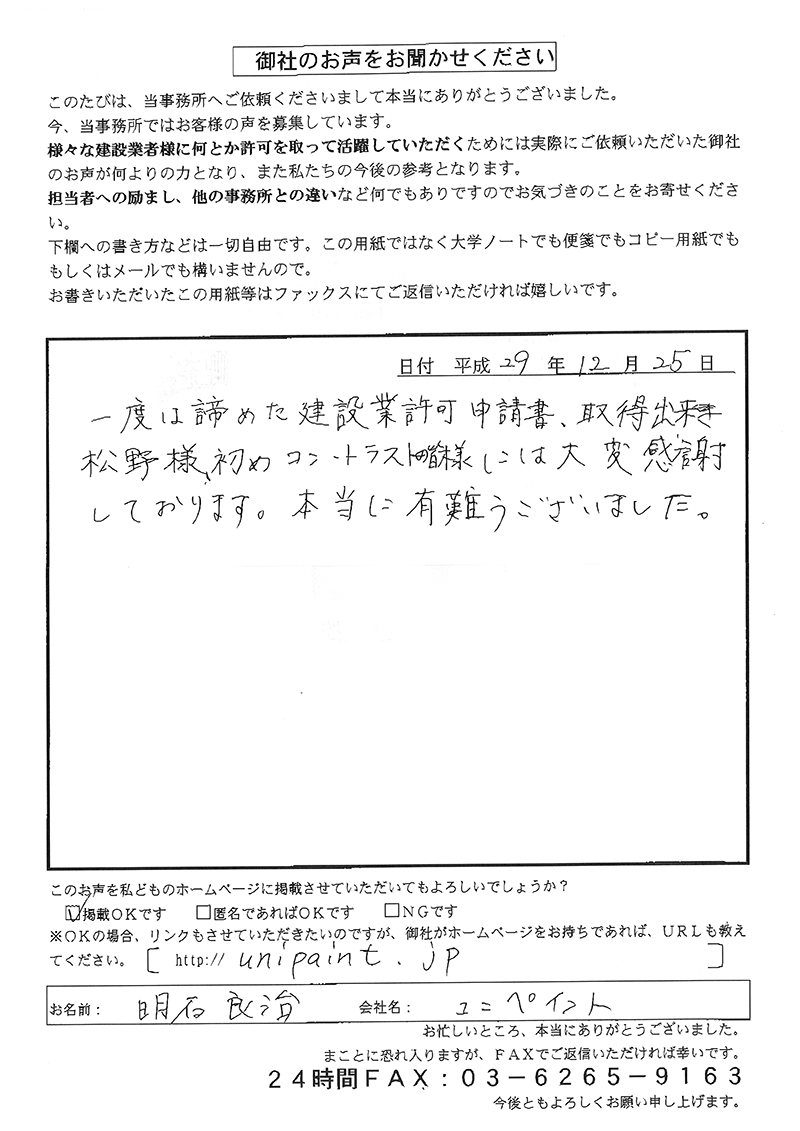 御社のお声をお聞かせください
このたびは、当事務所へご依頼くださいまして本当にありがとうございました。
今、当事務所ではお客様の声を募集しています。
様々な建設業者様に何とか許可を取って活躍していただくためには実際にご依頼いただいた御社
のお声が何よりの力となり、また私たちの今後の参考となります。
担当者への励まし、他の事務所との違いなど何でもありですのでお気づきのことをお寄せくださ
い。
下欄への書き方などは一切自由です。この用紙ではなく大学ノートでも便箋でもコピー用紙でも
もしくはメールでも構いませんので。
お書きいただいたこの用紙等はファックスにてご返信いただければ嬉しいです。
日付 平成 29 年 12 月 25 日
一度は諦めた建設業許可申請書、取得出来
松野様、初めコントラスト 様には大変感謝
しております。本当に有難うございました。
このお声を私どものホームページに掲載させていただいてもよろしいでしょうか?
☑掲載OKです □匿名であればOKです □NGです
※OKの場合、リンクもさせていただきたいのですが、御社がホームページをお持ちであれば、URLも教え
てください。 [ http:// unipaint.jp ]
お名前: 明石良治 会社名: ユニペイント
お忙しいところ、本当にありがとうございました。
まことに恐れ入りますが、FAXでご返信いただければ幸いです。
24時間FAX:03-6265-9163
今後ともよろしくお願い申し上げます。